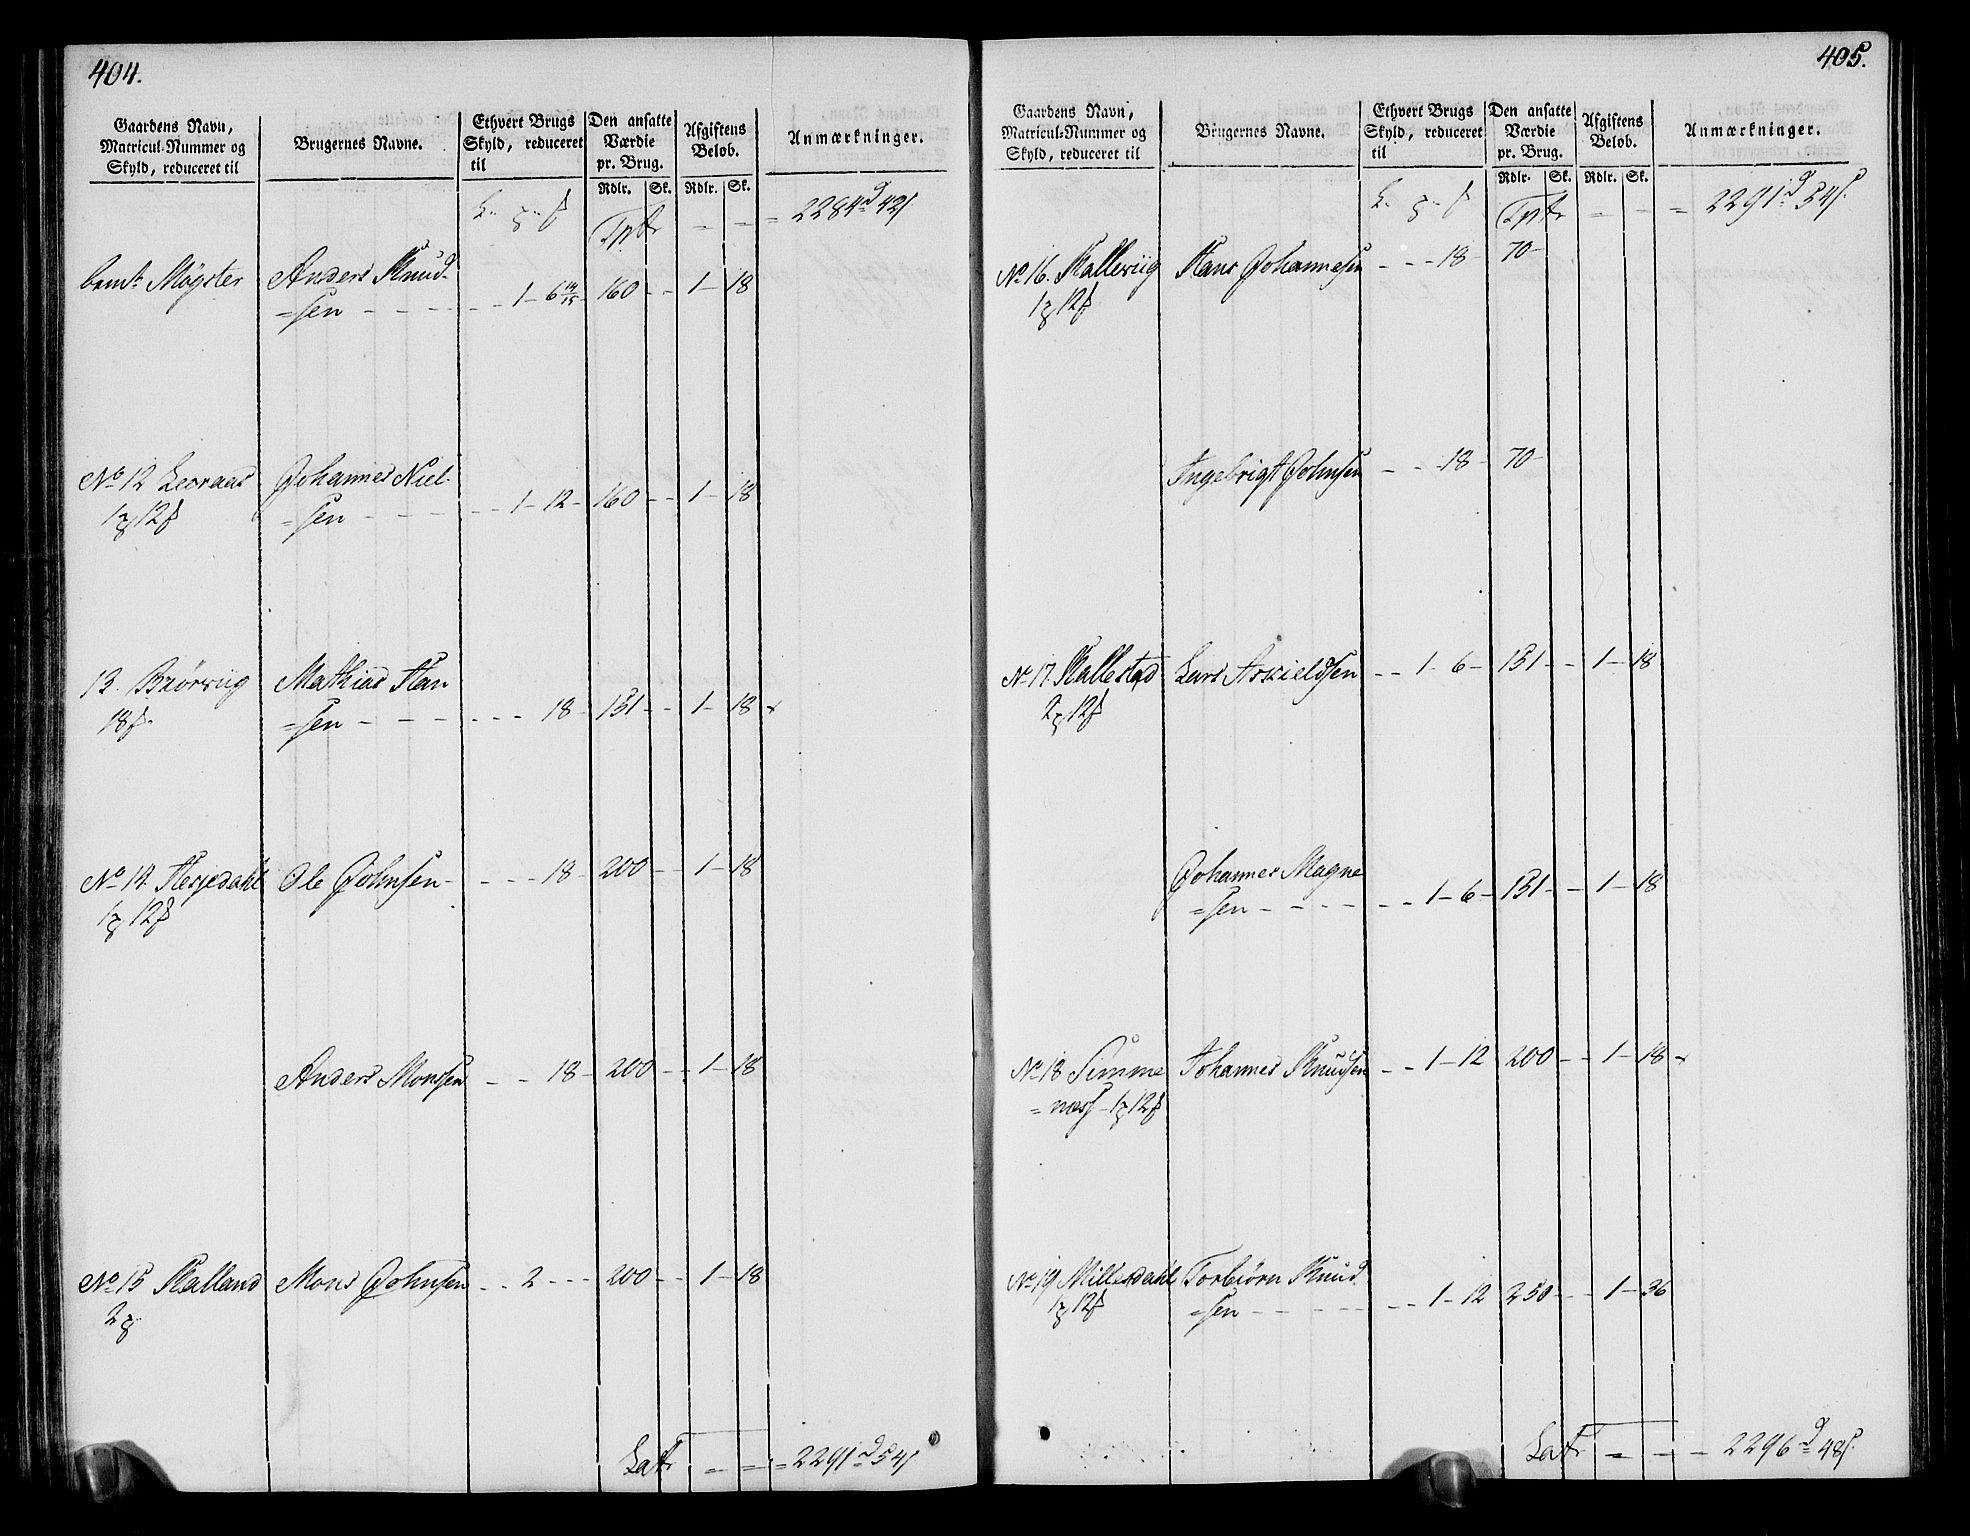 404.
Gaardens Navn, Matricul-Nummer og Skyld, reduceret til
Brugernes Navne.
Ethvert Brugs Skyld, reduceret til
Den ansatte Værdie pr. Brug.
Afgiftens Beløb.
Anmærkninger.
Rdlr. Sk. Rdlr. Sk.
Tptr - - = 2284 d 42 s
bemt. Møgster Anders Knud-
=sen - - - - - 1-6 14/15 160 - - 1-18
No 12 Leeraas Johannes Niel-
1 12 =sen - - - - 1-12- 160 - - 1-18
13. Børøwiig Mathias Han
18 =sen - - - - - - 18- 131 - - 1-18
No 14. Hesjedahl Ole Johnsen - - - - 18- 200 - - 1-18
1 12
Anders Monsen - - 18- 200 - - 1-18
No 15 Kalland Mons Johnsen - - 2 - - - 200 - - 1-18
2
Latr = = = 2291 d 54 s
405.
Gaardens Navn, Matricul-Nummer og Skyld, reduceret til
Brugernes Navne.
Ethvert Brugs Skyld, reduceret til
Den ansatte Værdie pr. Brug.
Afgiftens Beløb.
Anmærkninger.
Rdlr. Sk. Rdlr. Sk.
Tptr = - = 2291 d 54 s.
No 16. Kallewiig Hans Johannesen - - - 18- 70-
1 12
Ingebrigt Johnsen - - - 18- 70-
No 17. Kallestad Lars Askieldsen - - 1-6- 131 - - 1-18
2 12
Johannes Magne
=sen - - - - - - - 1-6- 131 - - 1-18
No 18 Timme Johannes Knudsen - - 1-12 200 - - 1-18
=næss - 1 12
No 19 Millesdahl Torbiørn Knud-
1 12 =sen - - - - - - 1-12 250 - - 1-36
Latr = - - 2296 d 48 s.